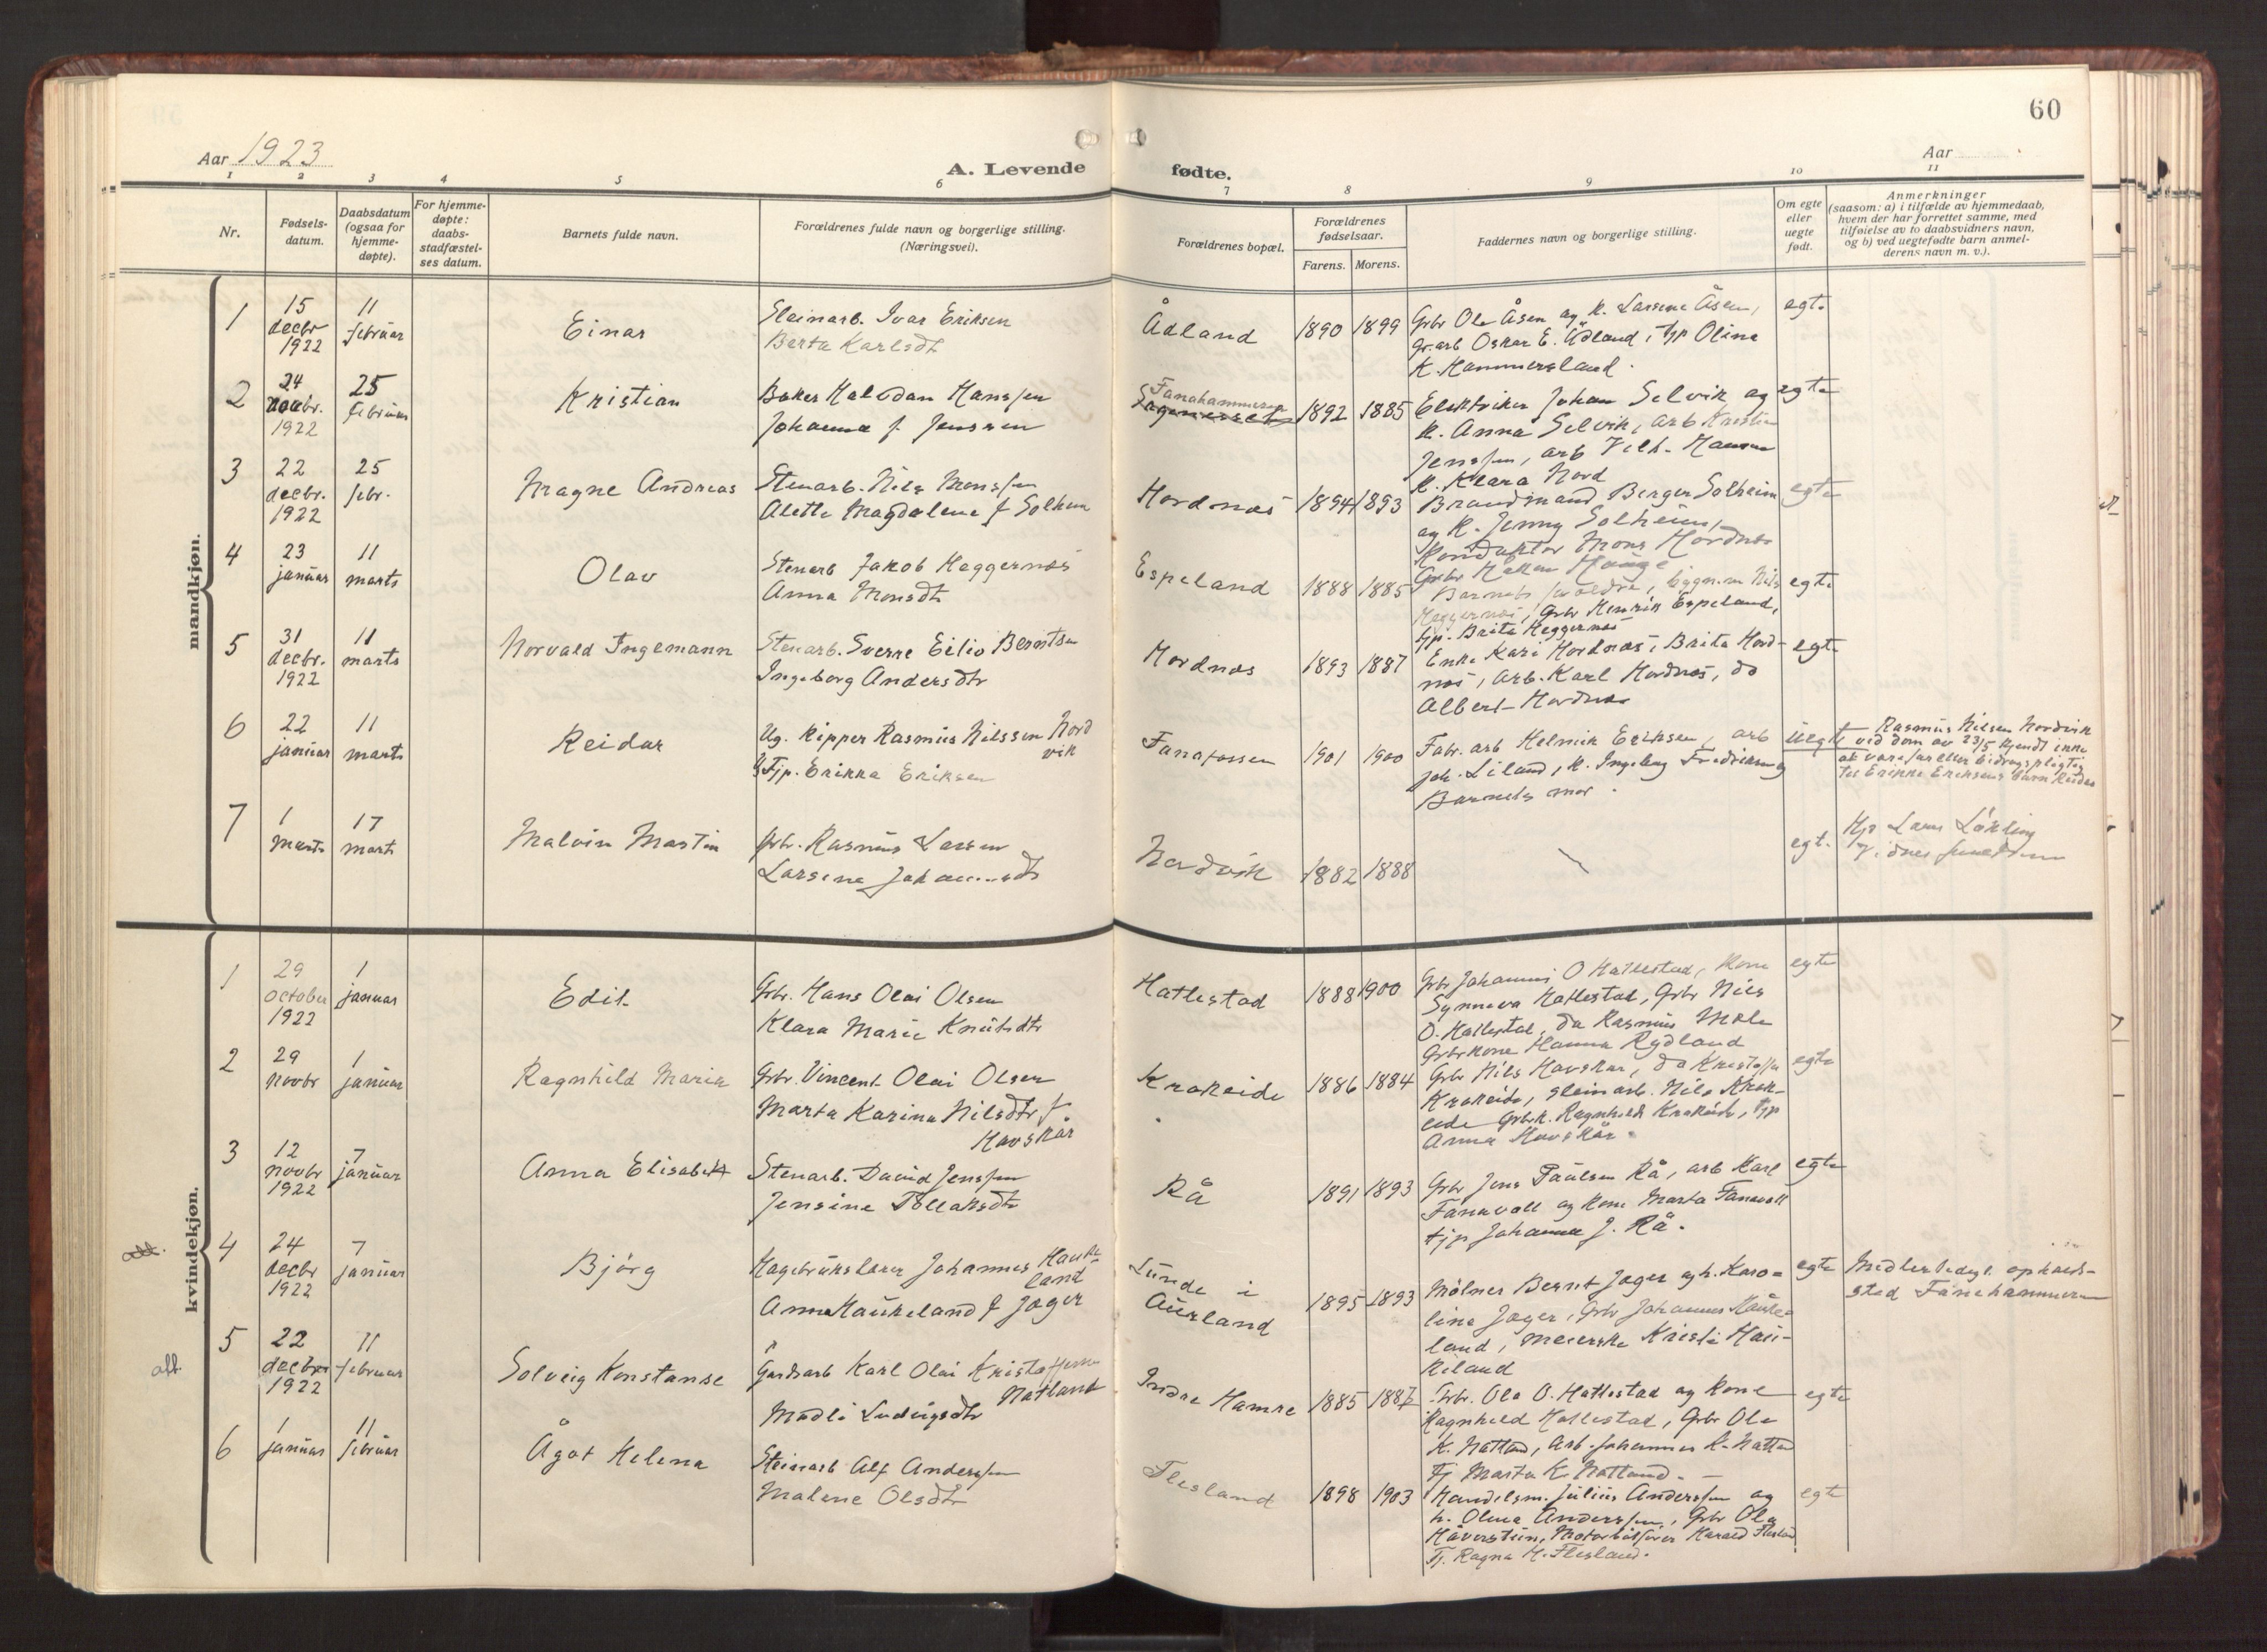 60
Aar 1923
A. Levende fødte.
Aar
1 2 3 4 5 6 7 8 9 10 11
Nr.
Fødsels-
datum.
Daabsdatum
(ogsaa for
hjemme-
døpte).
For hjemme-
døpte:
daabs-
stadfæstel-
ses datum.
Barnets fulde navn.
Forældrenes fulde navn og borgerlige stilling.
(Næringsvei).
Forældrenes bopæl.
Forældrenes
fødselsaar.
Farens. Morens.
Faddernes navn og borgerlige stilling.
Om egte
eller
uegte
født.
Anmerkninger
(saasom: a) i tilfælde av hjemmedaab,
hvem der har forrettet samme, med
tilføielse av to daabsvidners navn,
og b) ved uegtefødte barn anmel-
derens navn m. v.).
mandkjøn.
1
15
decbr
1922
11
februar
Einar
Steinarb. Ivar Eriksen
Berta Karlsdt
Ådland
1890 1899
Grbr Ole Åsen og K. Larsine Åsen,
gr.arb Oskar E. Ådland, tjp Olina
K. Hammersland.
egte
2
24
novbr.
1922
25
februar
Kristian
Baker Halvdan Hanssen
Johanna f. Jenssen
Fanahammeren
1892 1885
Elektriker Johan Selvik og
K. Anna Selvik, arb Kristian
Jenssen, arb Vilh. Hansen
K. Klara Nord
egte
3
22
decbr.
1922
25
febr.
Magne Andreas
Stenarb. Nils Monssen
Alette Magdalene f Solheim
Hordnæs
1894 1893
Brandmand Berger Solheim
og K. Jenny Solheim,
Konduktør Mons Hordnæs
Grbr Håkon Hauge
egte
4
23
januar
11
marts
Olav
Stenarb Jakob Heggernæs
Anna Monsdt
Espeland
1888 1885
Barnets forældre, bygn.m Nils
Heggernæs, Grbr Henrik Espeland,
tjp. Brita Heggernæs
egte
5
31
decbr.
1922
11
marts
Norvald Ingemann
Stenarb. Sverre Eilio Berntsen
Ingeborg Andersdtr
Hordnæs
1893 1887
Enke Kari Hordnæs, Brita Hord-
næs, arb. Karl Hordnæs, do
Albert Hordnæs
egte
6
22
januar
11
marts
Reidar
Ug. Ripper Rasmus Nilssen Nord
vik
Tjp. Erikka Eriksen
Fanafossen
1901 1900
Fabr. arb Helmik Eriksen, arb
Joh. Liland, K. Ingeborg Fredriksen og
Barnets mor.
uegte
Rasmus Nilsen Nordvik
ved dom av 23/5 kjendt ikke
at være far eller bidragspligtig
til Erikke Eriksens barn Reidar
7
1
marts
17
marts
Malvin Martin
Grbr. Rasmus Larsen
Larsine Johannesdt
Nordvik
1882 1888
egt.
Hjd Lars
kvindekjøn.
1
29
october
1922
1
januar
Edit
Grbr. Hans Olai Olsen
Klara Marie Knutsdtr
Hatlestad
1888 1900
Grbr Johannes O Hatlestad, Kone
Synneva Hatlestad, Grbr Nils
O. Hatlestad, do Rasmus Mæle
Grbrkone Hanna Rydland
egte
2
29
novbr
1
januar
Ragnhild Maria
Grbr. Vincent Olai Olsen
Marta Karina Nilsdtr f
Havskår
Krokeide
1886 1884
Grbr Nils Havskår, do Kristoffer
Krokeide, steinarb. Nils Krok-
eide Grbrk. Ragnhild Krokeide, tjp
Anna Havskår.
egte
3
12
novbr
1922
7
januar
Anna Elisabeth
Stenarb. David Jenssen
Jensine Tollaksdtr
Rå
1891 1893
Grbr Jens Paulsen Rå, arb Karl
Fanavoll og kone Marta Fanavoll
tjp Johanna J. Rå.
egte
att.
4
24
decbr
1922
7
januar
Bjørg
Hagebrukslærer Johannes Hauke-
land
Anna Haukeland f Jæger
Lunde i
Aurland
1895 1893
Mølner Bernt Jæger og h. Karo=
line Jæger, Grbr Johannes Hauke-
land, meierske Kristi Hau-
keland
egte
Midlertidig. opholds-
sted Fanahammeren
att.
5
22
decbr
1922
11
februar
Solveig Konstanse
Gardsarb Karl Olai Kristoffersen
Natland
Madli Ludvigsdtr
Indre Hamre
1885 1887
Grbr. Ola O. Hatlestad og kone
Ragnhild Hatlestad, Grbr Ole
K. Natland, Arb. Johannes K. Natland
Tj Marta K. Natland.
egte
6
1
januar
11
februar
Ågot Helena
Steinarb Alf Anderssen
Malene Olsdtr
Flesland
1898 1903
Handelsm. Julius Anderssen og
h. Olina Anderssen, Grbr Ola
Håverstein, Motorbåtfører Harald Flesland
Tj. Ragna H. Flesland.
egte